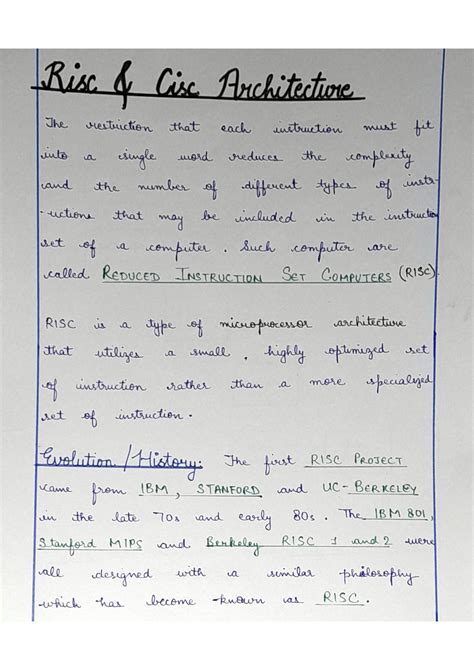 Risc & Cisc Architecture
The restriction that each instruction must fit
into a single word reduces the complexity
and the number of different types of instr-
-uctions that may be included in the instruction
set of a computer. Such computer are
called REDUCED INSTRUCTION SET COMPUTERS (RISC)
RISC is a type of microprocessor architecture
that utilizes a small, highly optimized set
of instruction rather than a more specialized
set of instruction.
Evolution / History: The first RISC PROJECT
came from IBM, STANFORD and UC-BERKELEY
in the late 70s and early 80s. The IBM 801,
Stanford MIPS and Berkeley RISC 1 and 2 were
all designed with a similar philosophy
which has become known as RISC.